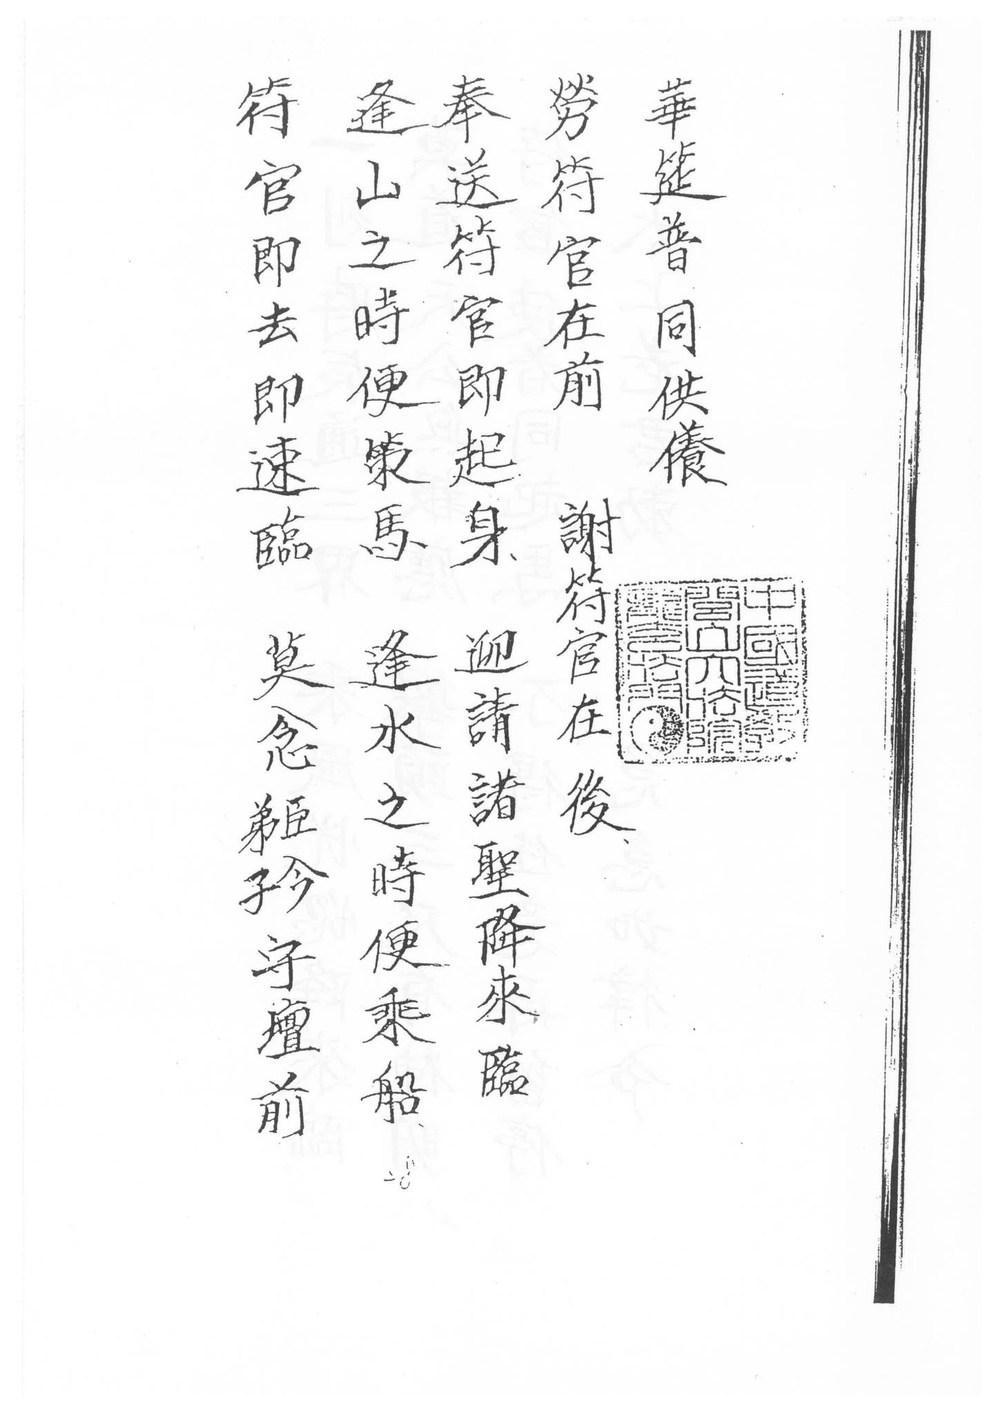 華筵普同供養
勞符官在前 謝符官在後
奉送符官即起身 迎請諸聖降來臨
逢山之時便策馬 逢水之時便乘船
符官即去即速臨 莫念弟子臣今守壇前
中國道教